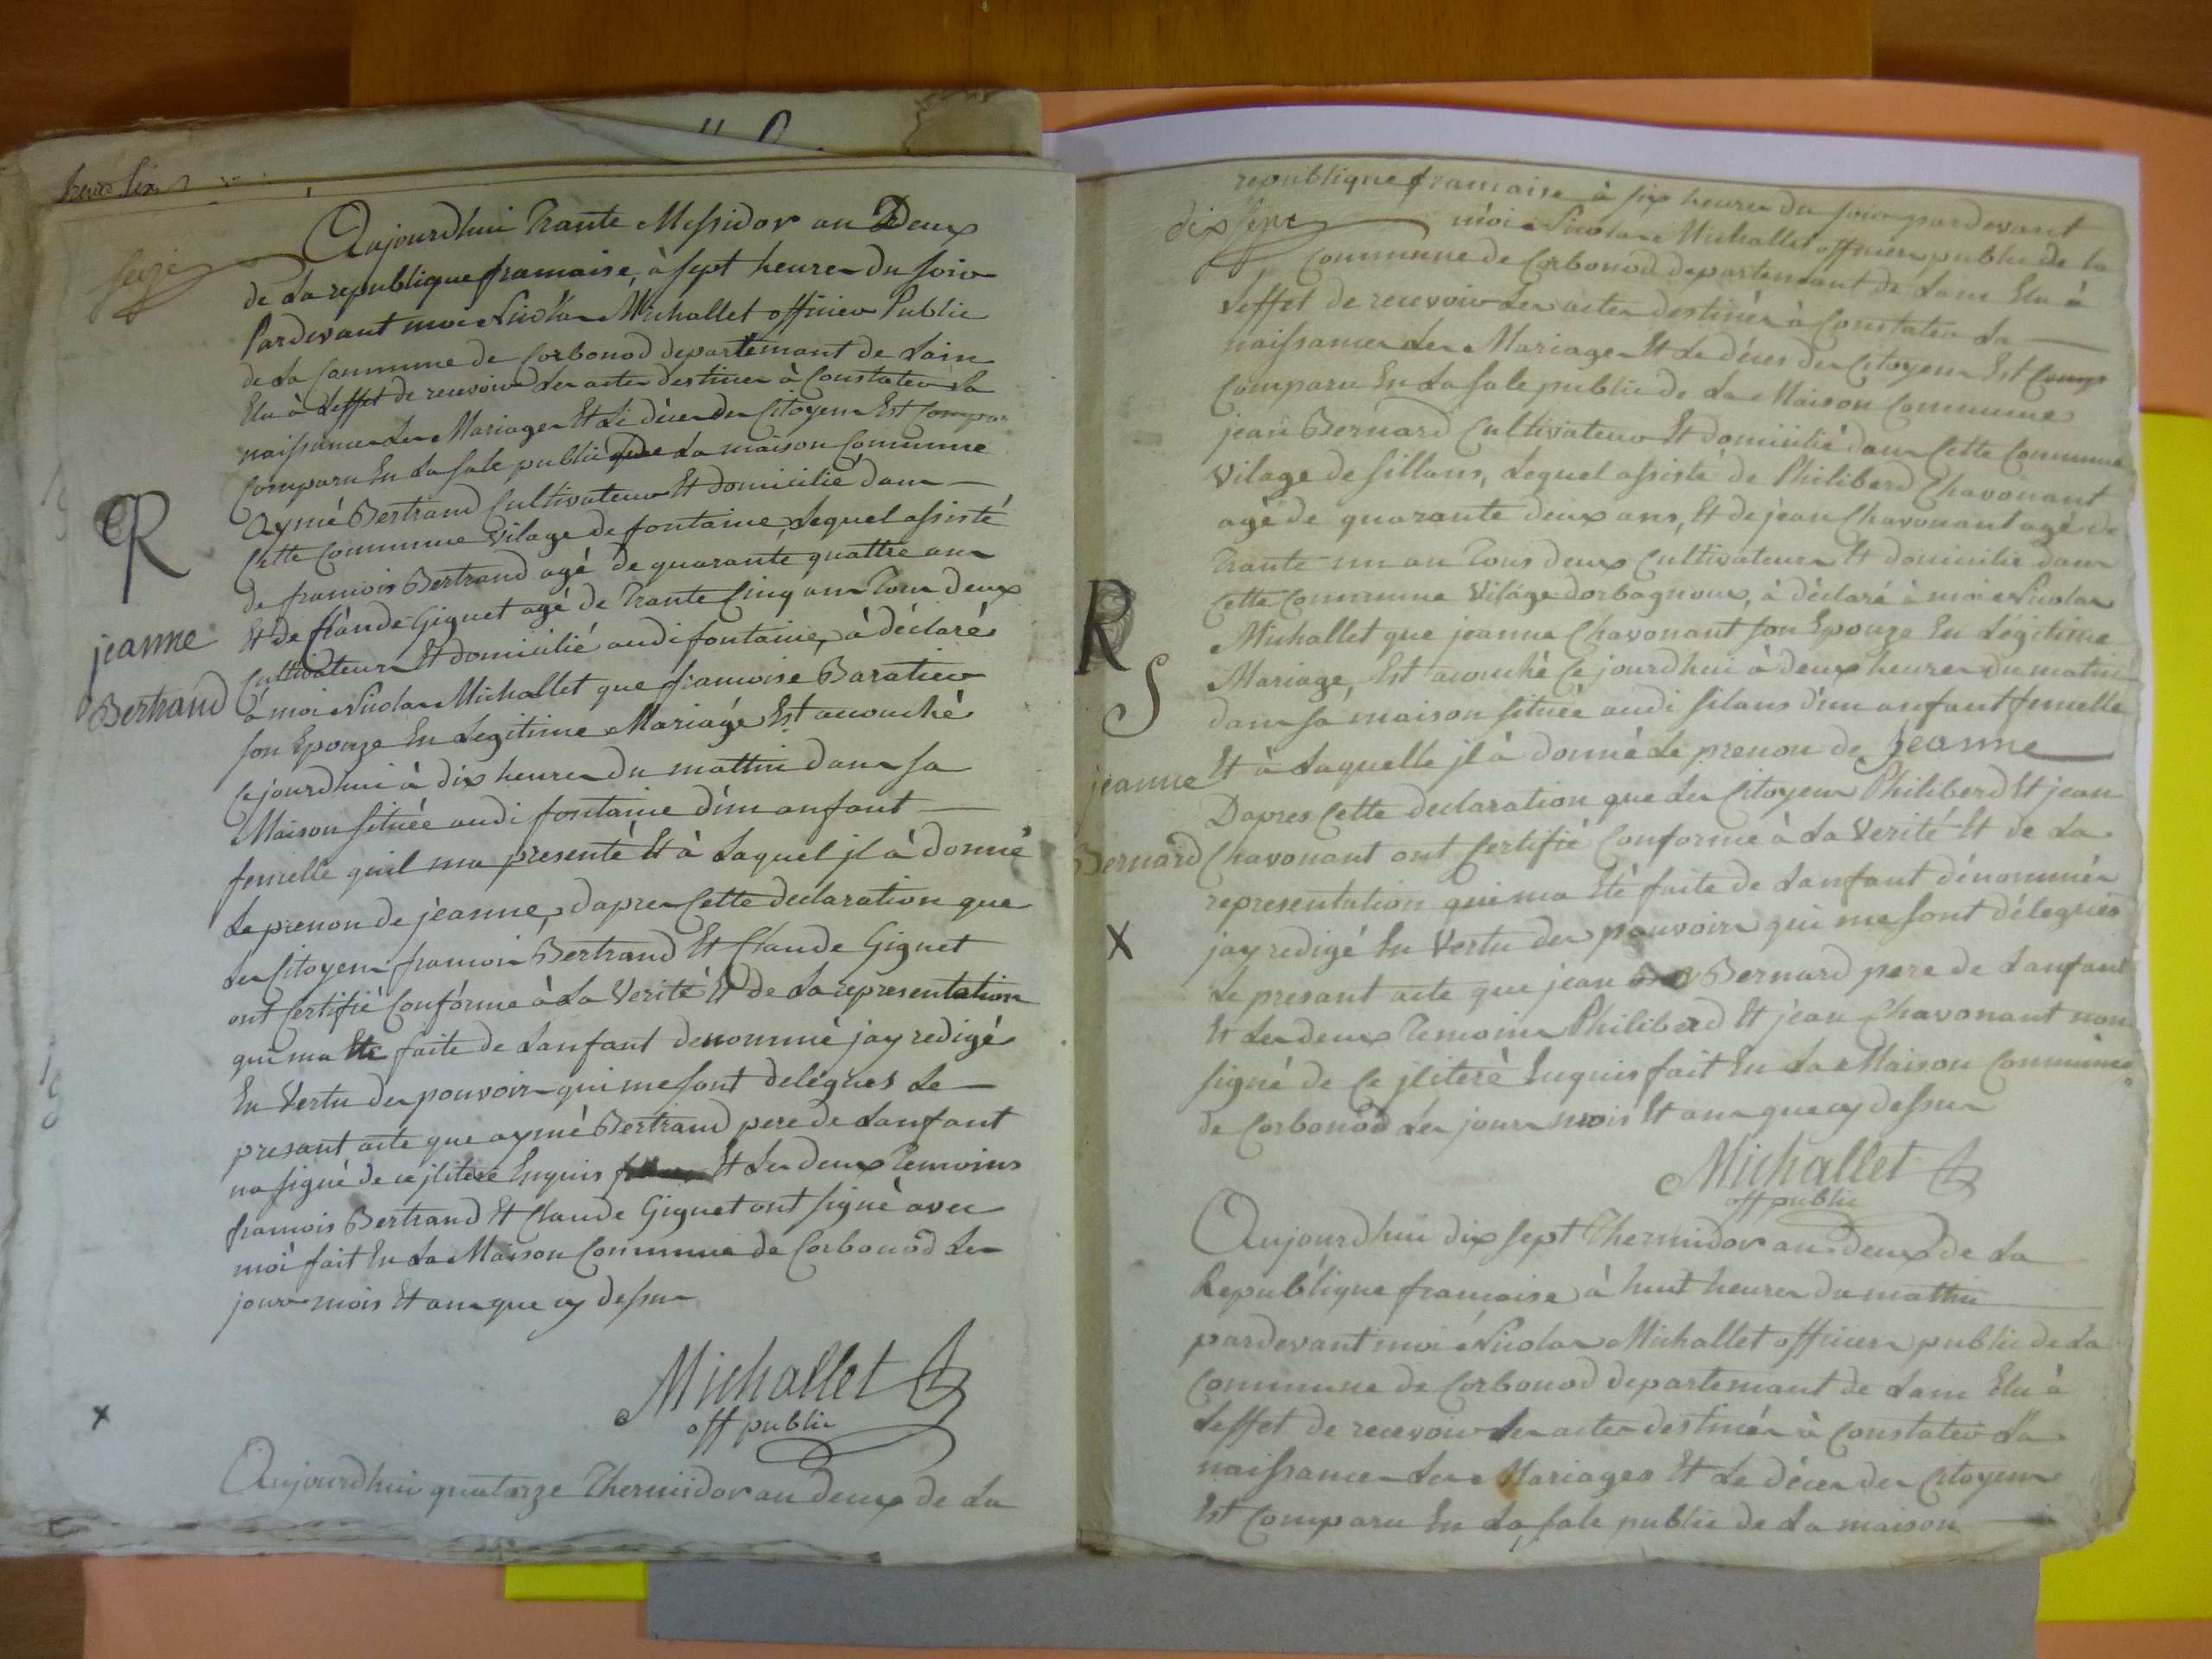 seize
Aujourdhui Trante Messidor an Deux
de La republique francaise, à sept heures du soir
Pardevant moi Nicolas Michallet officier Public
de La Commune de Corbonod departemant de Lain
Elu à Leffet de recevoir Les actes destines à Constater La
naissances Les Mariages Et Le déces des Citoyens Est Compar
Comparu En La sale public de La maison Commune
Aymé Bertrand Cultivateur Et domicilié dans
Cette Commune vilage de fontaine, Lequel assisté
de francois Bertrand agé de quarante quattre ans
Et de Claude Giguet agé de Trante Cinq ans Tous deux
Cultivateurs Et domicilié audi fontaine, à déclaré
à moi Nicolas Michallet que francoise Baratier
son Epouze En Legitime Mariage Est acouché
Cejourdhui à dix heures du mattin dans sa
Maison située audi fontaine dun anfant
femelle quil ma presenté Et à Laquel jl à donné
Le prenon de jeanne, dapres Cette declaration que
Les Citoyens francois Bertrand Et Claude Giguet
ont Certifié Conforme à La Verité Et de La representation
qui ma Ete faite de Lanfant denommé jay redigé
En Vertu des pouvoirs qui me sont delégues Le
presant acte que aymé Bertrand pere de Lanfant
na signé de ce jliteré Enquis Et Les deux Temoins
francois Bertrand Et Claude Giguet ont signé avec
moi fait En La Maison Commune de Corbonod Les
jours mois Et ans que cy dessus
Michallet
off public
R
jeanne
Bertrand
x
Aujourdhui quatorze Thermidor an deux de La
republique francaise à six heures du soir pardevant
dix sept
moi Nicolas Michallet officier public de la
Commune de Corbonod departemant de Lain Elu à
Leffet de recevoir Les actes destinés à Constater La
naissances Les Mariages Et Le déces des Citoyens Est Comp
Comparu En La sale public de La Maison Commune
jean Bernard Cultivateur Et domicilié dans Cette Commune
Vilage de sillans, Lequel assisté de Philiberd Chavonant
agé de quarante deux ans, Et de jean Chavonant agé de
Trante un an Tous deux Cultivateurs Et domicilié dans
Cette Commune Vilage dorbagnoux, à déclaré à moi Nicolas
Michallet que jeanne Chavonant son Epouze En Légitime
Mariage, Est acouché Ce jourdhui à deux heures du matin
dans sa maison située audi silans dun anfant femelle
Et à Laquelle jl à donné Le prenon de Jeanne
Dapres Cette declaration que Les Citoyens Philiberd Et jean
Chavonant ont Certifié Conforme à La Verité Et de La
representation qui ma Eté faite de Lanfant dénommés
jay redigé En Vertu des pouvoirs qui me sont délegués
Le presant acte que jean Bernard pere de Lanfant
Et Les deux Temoins Philiberd Et jean Chavonant non
signé de Ce jliteré Enquis fait En La Maison Commune
de Corbonod Les jours mois Et ans que cy dessus
Michallet
off public
R
S
jeanne
Bernard
x
Aujourdhui dix sept Thermidor an deux de La
Republique francaise à huit heures du mattin
pardevant moi Nicolas Michallet officier public de La
Commune de Corbonod departemant de Lain Elu à
Leffet de recevoir Les actes destinés à Constater La
naissances Les Mariages Et Le déces des Citoyens
Est Comparu En La sale public de La maison